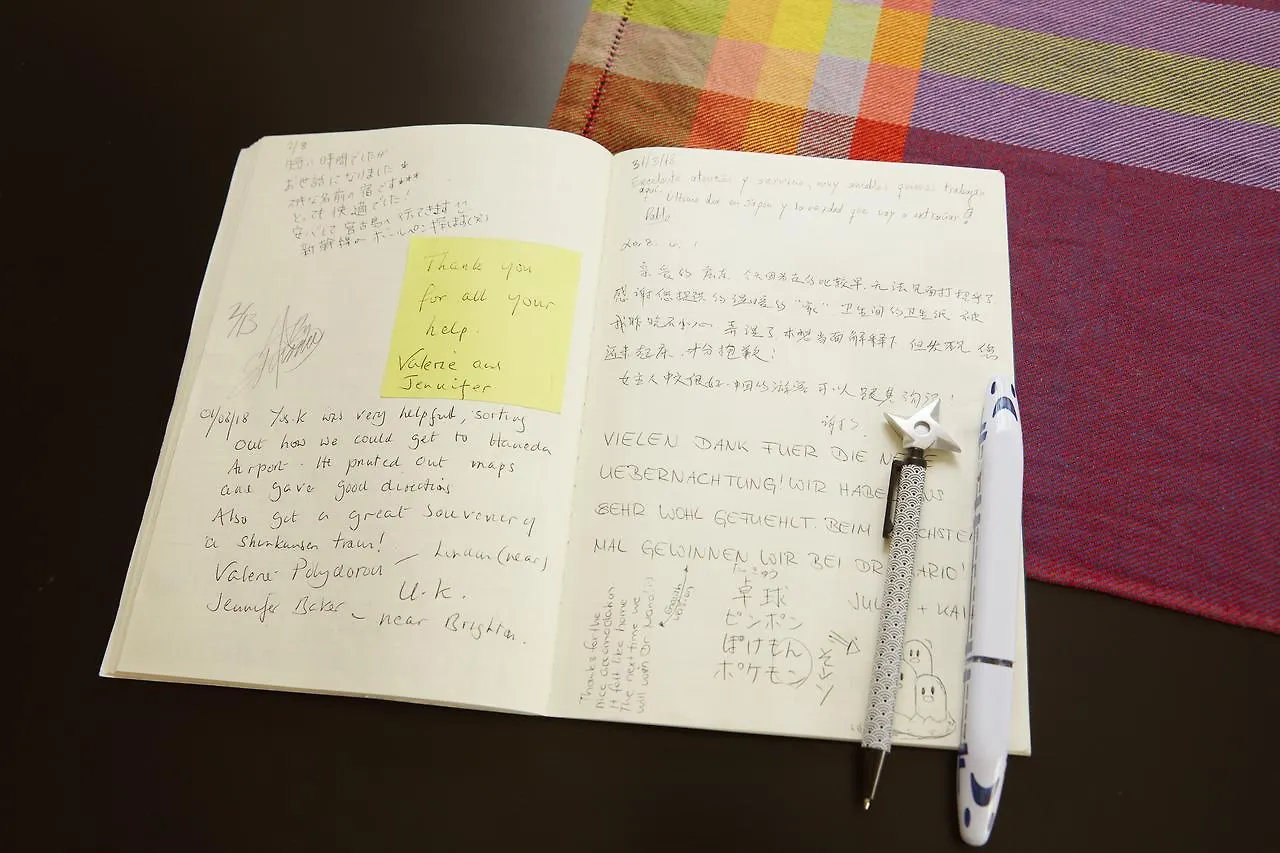 2/8
短い時間でしたが
お世話になりました
な名前の宿です***
とっても快適でした!
安心して宮古島へ行てきます
新幹線のボールペン
Thank you
for all your
help.
Valerie and
Jennifer
2/3
01/03/18 was very helpful, sorting
out how we could get to Haneda
Airport. He printed out maps
and gave good directions
Also got a great souvenir,
a Shinkansen train!
Valerie Polydorou — London (near)
U.K.
Jennifer Baker — near Brighton.
31/3/18
Excelente atención y servicio, muy amables quienes trabajan
aquí. Ultimo día en Japon y la verdad que voy a extrañar
Pablo
2018. 4. 1
亲爱的房东, 今天因为走的比较早, 无法见面打招呼了
感谢您提供的温暖的"家" 卫生间的卫生纸 被
我昨晚不小心 弄湿了 本想当面解释下 但发现 您
还未起床, 十分抱歉!
女主人中文很好, 中国的游客可以跟其沟通!
谢谢
VIELEN DANK FUER DIE
UEBERNACHTUNG! WIR HABE
SEHR WOHL GEFUEHLT. BEIM CHSTEN
MAL GEWINNEN WIR BEI DR. ARIO!
JUL + KAI
Thanks for the
nice accomodation
It felt like home
The next time we
will win Dr Mario!:)
English
version
たっきゅう
卓球
ピンポン
ぽけもん
ポケモン